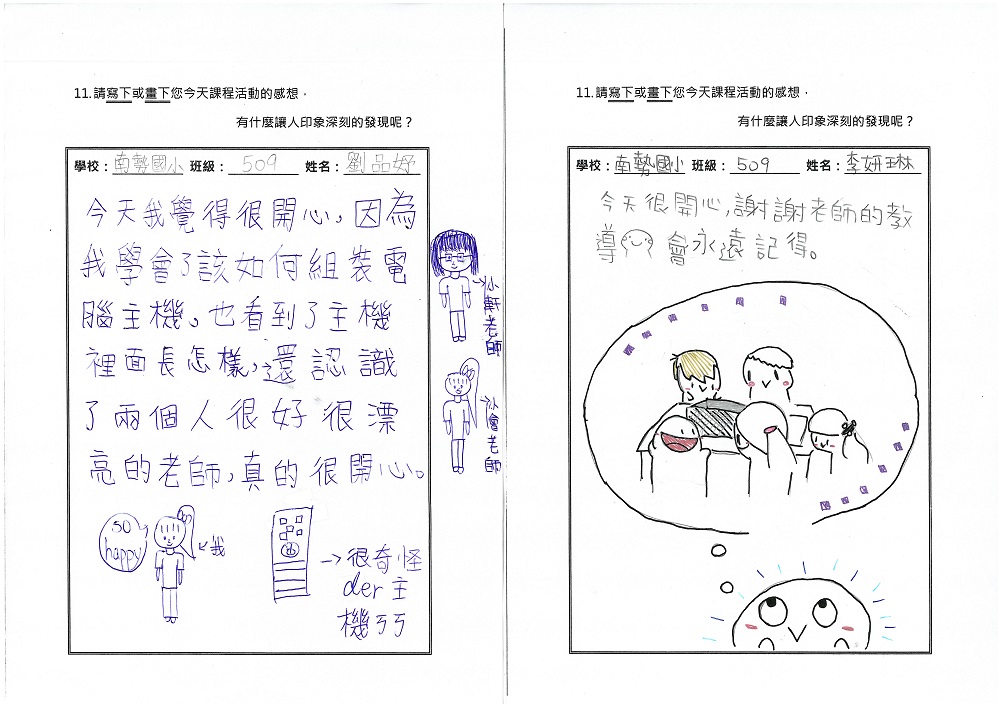 11.請寫下或畫下您今天課程活動的感想，
有什麼讓人印象深刻的發現呢？
學校：南勢國小 班級：509 姓名：劉品妤
今天我覺得很開心，因為
我學會了該如何組裝電
腦主機。也看到了主機
裡面長怎樣，還認識
了兩個人很好很漂
亮的老師，真的很開心。
小軒老師
小會老師
so
happy
我
很奇怪
der主
機ㄎㄎ
11.請寫下或畫下您今天課程活動的感想，
有什麼讓人印象深刻的發現呢？
學校：南勢國小 班級：509 姓名：李妍琳
今天很開心，謝謝老師的教
導 會永遠記得。